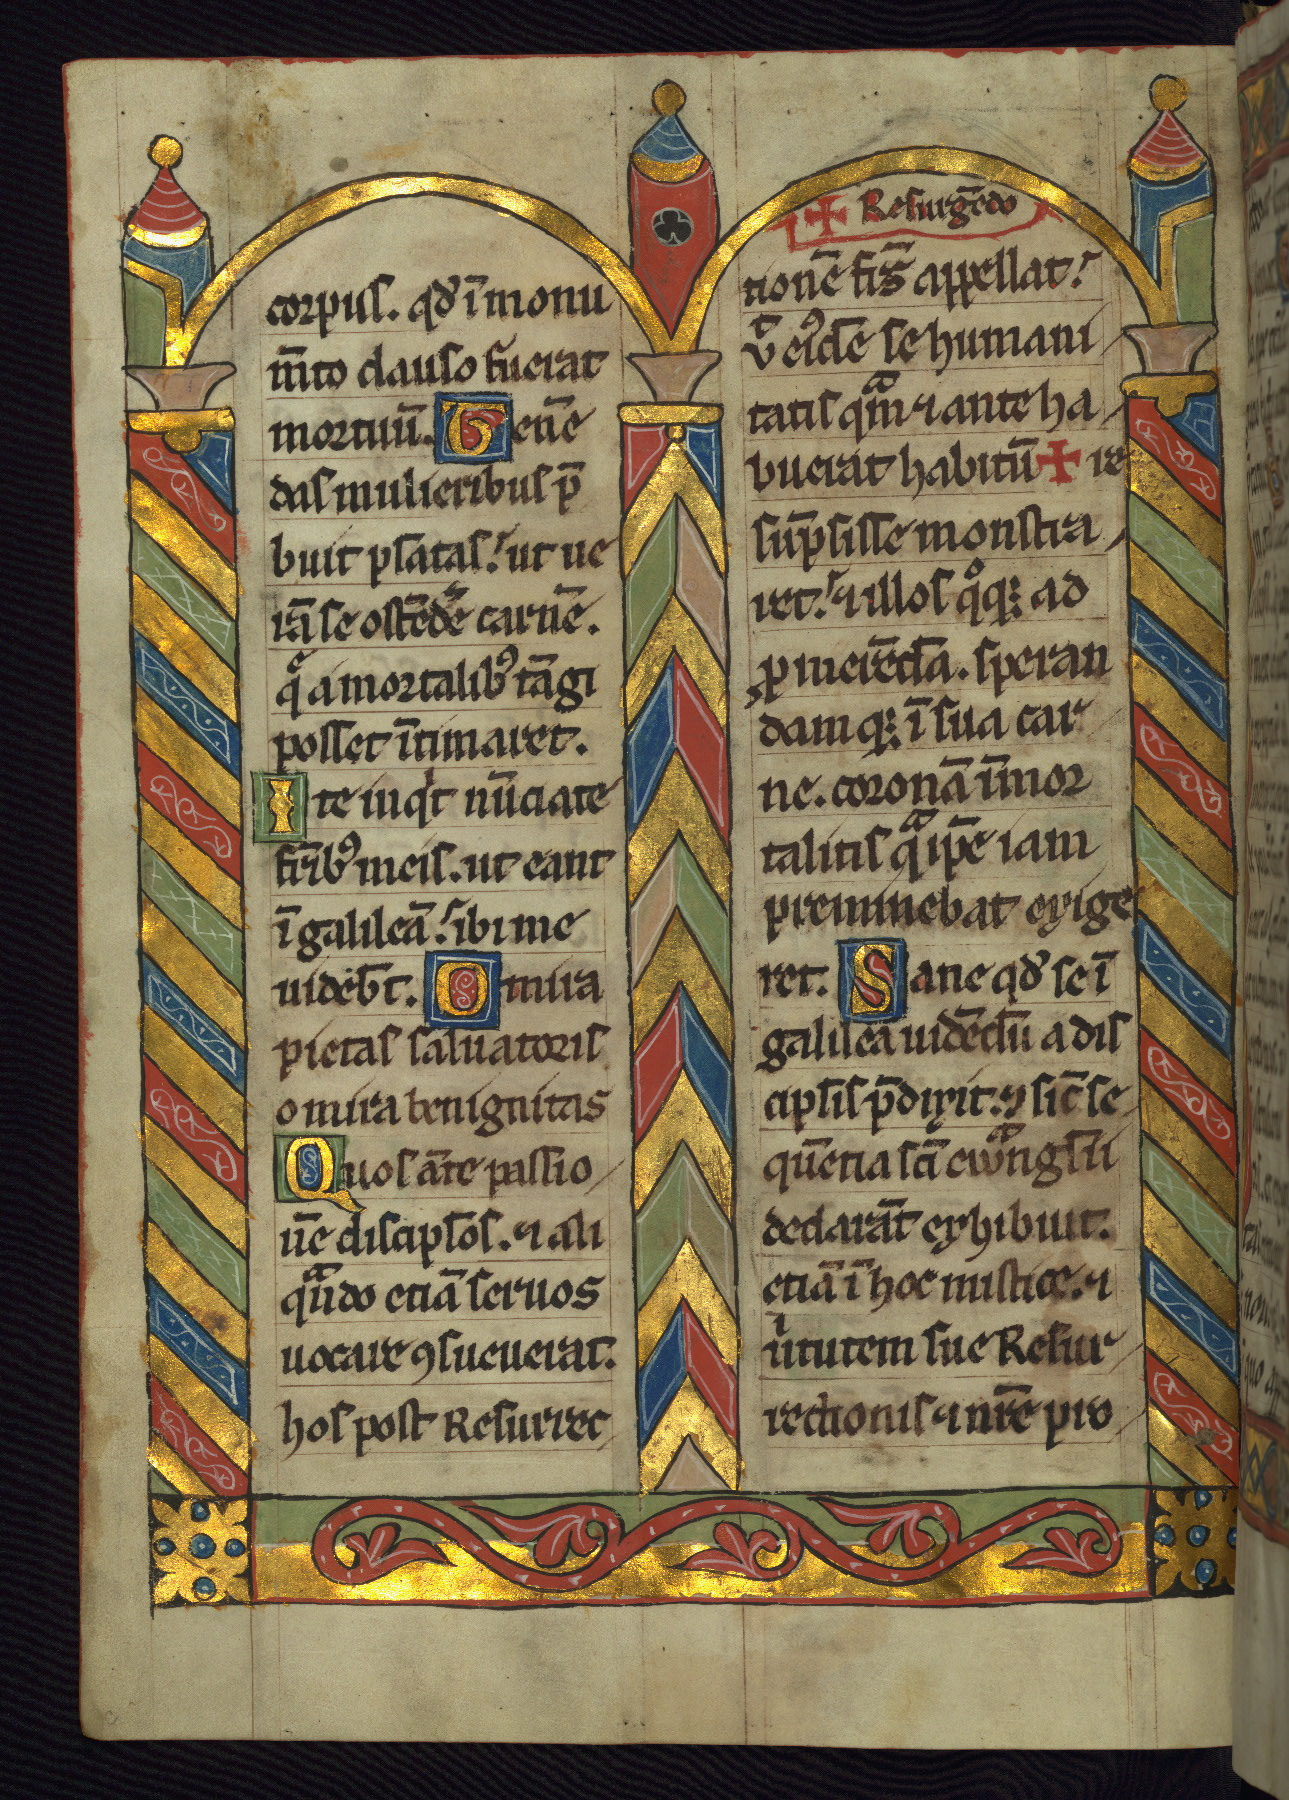 corpus. qd̕ i̅ monu
m̅to clauso fuerat
mortuu̅. Tene̅
das mulieribus p̅
buit pla̅tas: ut ue
ra̅ se oste̅de̅t carne̅.
qͥ a mortalib᷒ ta̅gi
posset i̅timaret.
Ite inqͥt nu̅ciate
fr̅ib᷒ meis. ut eant
i̅ galilea̅: ibi me
uideb̅t. O mira
pietas saluatoris
o mira benignitas
Quos a̅te passio
ne̅ discipl̅os. ⁊ ali
qᵃn̅do etia̅ seruos
uocare ꝯsueuerat.
hos post Resurrec
✝ Resurge̅do
tione̅ fr̅s appellat:
Ut eide̅ se humani
tatis qᵃm ⁊ ante ha
buerat habitu̅ ✝ re
su̅psisse monstra
ret: ⁊ illos qͦq; ad
ꝓmere̅da̅. speran
damq; i̅ sua car
ne. corona̅ i̅mor
talitis qᵃ ip̅e iam
preminebat erige
ret. Sane qd̕ se i̅
galilea uide̅du̅ a dis
cipl̅is p̅dixit: ⁊ sic̅ se
que̅tia sc̅i ewᵃngl̅ii
declara̅t exhibuit.
etia̅ i̅ hoc mistice. ⁊
uͥtutem sue Resur
rectionis ⁊ nr̅e pro